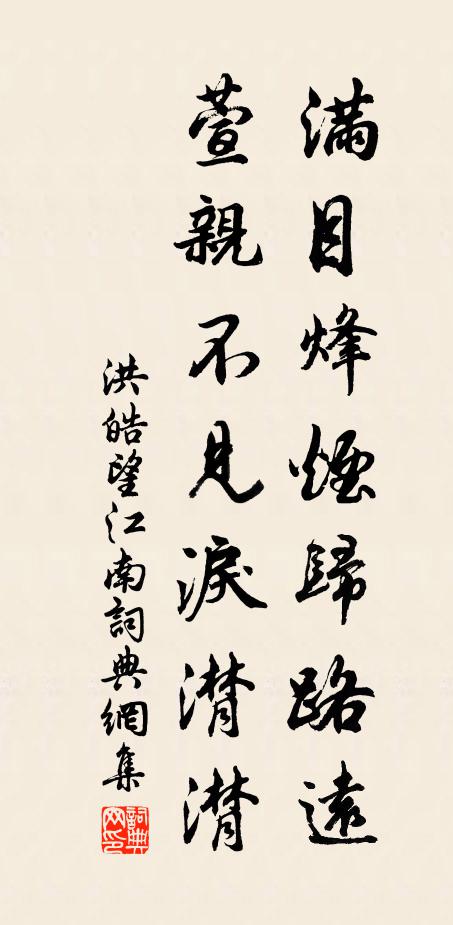 滿目烽煙歸路遠
萱親不見淚潸潸
洪皓望江南詞典網集
詞典網印